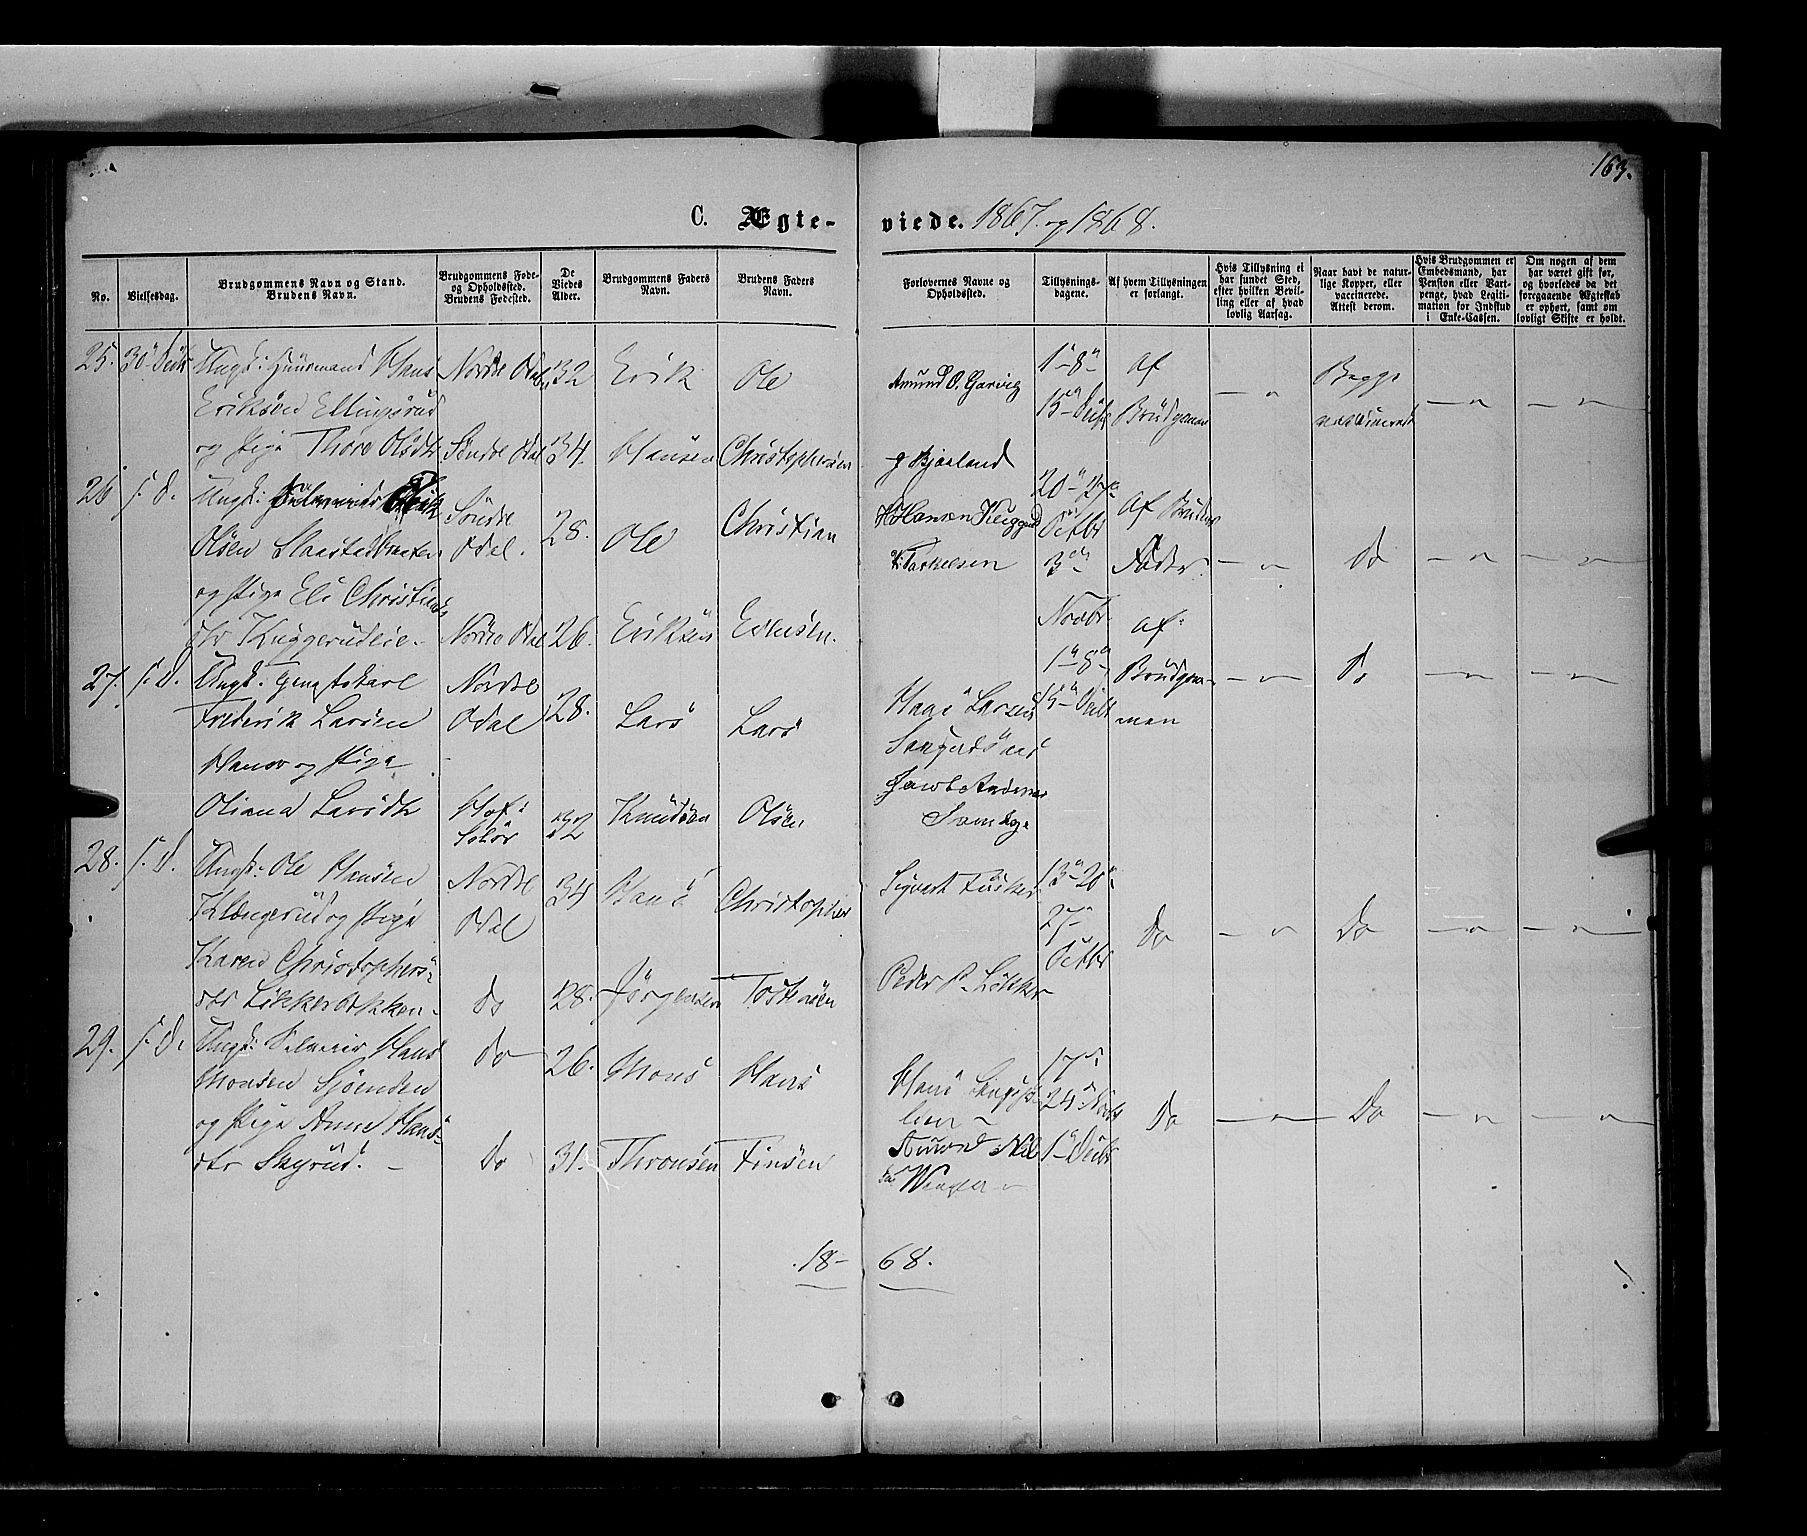 163.
C. Ægte-
viede. 1867. og 1868.
No.
Vielsesdag.
Brudgommens Navn og Stand.
Brudens Navn.
Brudgommens Føde-
og Opholdssted.
Brudens Fødested.
De
Viedes
Alder.
Brudgommens Faders
Navn.
Brudens Faders
Navn.
Forlovernes Navne og
Opholdssted.
Tillysnings-
dagene.
Af hvem Tillysningen
er forlangt.
Hvis Tillysning ei
har fundet Sted,
efter hvilken Bevil-
ling eller af hvad
lovlig Aarsag.
Naar havt de natur-
lige Kopper, eller
vaccinerede.
Attest derom.
Hvis Brudgommen er
Embedsmand, har
Pension eller Vart-
penge, hvad Legiti-
mation for Indskud
i Enke-Cassen.
Om nogen af dem
har været gift før,
og hvorledes da det
foregaaende Ægteskab
er ophørt, samt om
lovligt Skifte er holdt.
25. 30
Ungk: Huusmand Hans
Eriksen Ellingsrud
og Pige Thore Olsdtr
Nordre Odal
Søndre Odal
32
34.
Erik
Hansen
Ole
Christophersen
Amund O. Garvig
J Bjørland
1" 8"
15" Decbr
Af
Brudgommen
Begge
vaccinerede
26 s. D.
Ungk:
Olsen
og Pige Eli Christians
dtr Kuggerudeie
Søndre
Odal.
Nordre Odal
28.
26.
Ole
Eriksen
Christian
Evensen.
Torkelsen
20" 27"
Octbr
3"
Novbr
Af Brudens
Fader
Do
27. s. D.
Ungk:
Frederik Larsen
og Pige
Oliana Larsdtr
Nordre
Odal
Hof i
Solør
28.
32
Lars
Knudsen
Lars
Olsen
Hans Larsen
Jacob Andersen
1" 8"
15" Decbr
af
Brudgom-
men
Do
28. s. D.
Ungk: Ole Hansen
og Pige
Karen Christophers-
dtr Løkkebakken
Nordre
Odal
Do
34
28.
Hans
Jørgensen
Christopher
Tostensen
Peder P. Løkken
13" 20"
27"
Octbr
Do
Do
29. s. D.
Ungk: Hans
Monsen Sjøenden
og Pige Anne Hans-
dtr Skyrud.
Do
Do
26.
31.
Mons
Thronsen
Hans
Finsen
Hans
Amund
17"
24" Novbr
1" Decbr
Do
Do
18-68.